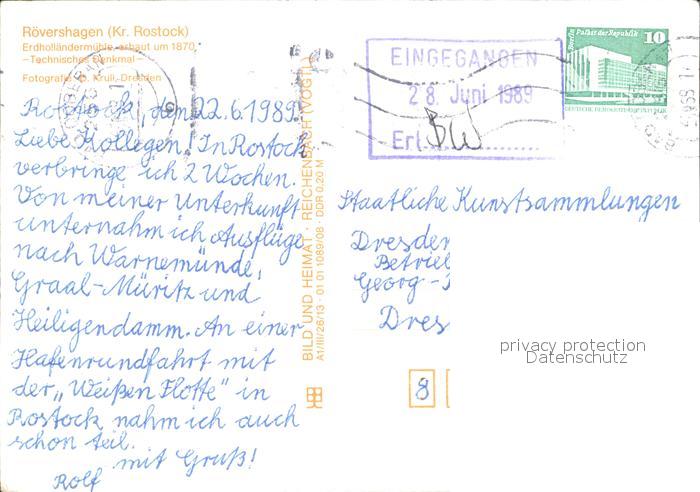 Rövershagen (Kr. Rostock)
Erdholländermühle, erbaut um 1870
–Technisches Denkmal–
Fotografie: D. Krull, Dresden
Rostock, den 22.6.1989
Liebe Kollegen! In Rostock
verbringe ich 2 Wochen.
Von meiner Unterkunft
unternahm ich Ausflüge
nach Warnemünde,
Graal-Müritz und
Heiligendamm. An einer
Hafenrundfahrt mit
der „Weißen Flotte" in
Rostock nahm ich auch
schon teil.
mit Gruß!
Rolf
BILD UND HEIMAT · REICHENBACH (VOGTL)
A1/III/26/13 · 01 01 1089/08 · DDR 0,20 M
EINGEGANGEN
28. Juni 1989
Erl.
Berlin, Palast der Republik
10
DEUTSCHE DEMOKRATISCHE REPUBLIK
Staatliche Kunstsammlungen
Dresden
Betrie
Georg -
Dres
privacy protection
Datenschutz
8